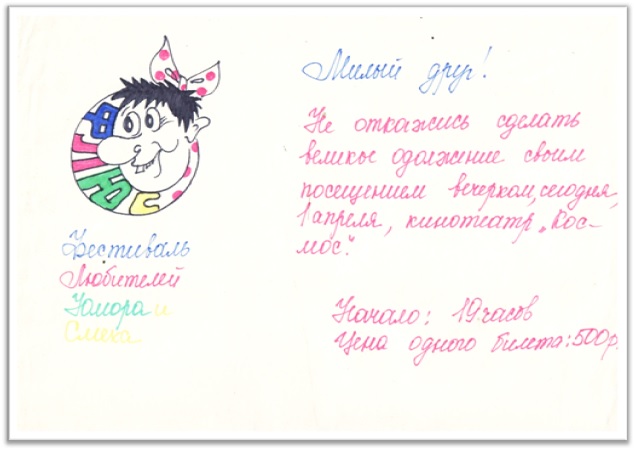 ФЛЮС
Фестиваль
Любителей
Юмора и
Смеха
Милый друг!
Не откажись сделать
великое одолжение своим
посещением вечерком, сегодня,
1 апреля, кинотеатр „Кос-
мос".
Начало: 19 часов
Цена одного билета: 500 р.